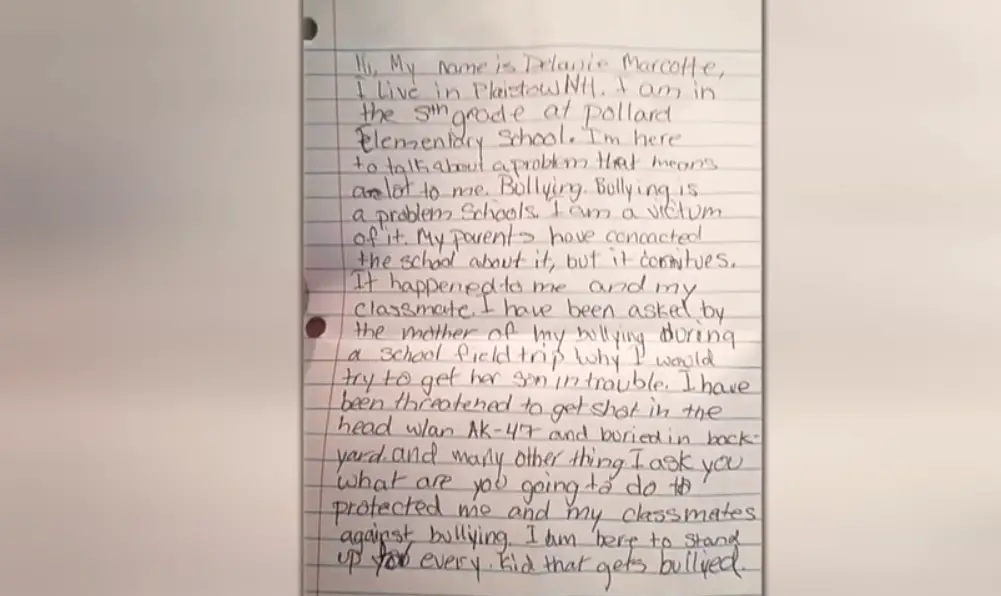 Hi, My name is Delanie Marcotte,
I live in Plaistow NH. I am in
the 5th grade at pollard
Elementary School. I'm here
to talk about a problem that means
a lot to me. Bullying. Bullying is
a problem Schools. I am a victum
of it. My parents have concacted
the school about it, but it
It happened to me and my
classmate. I have been asked by
the mother of my bullying during
a school field trip why I would
try to get her son in trouble. I have
been threatened to get shot in the
head w/an AK-47 and buried in back-
yard and many other thing I ask you
what are you going to do to
protected me and my classmates
against bullying. I am here to stand
up for every kid that gets bullyed.